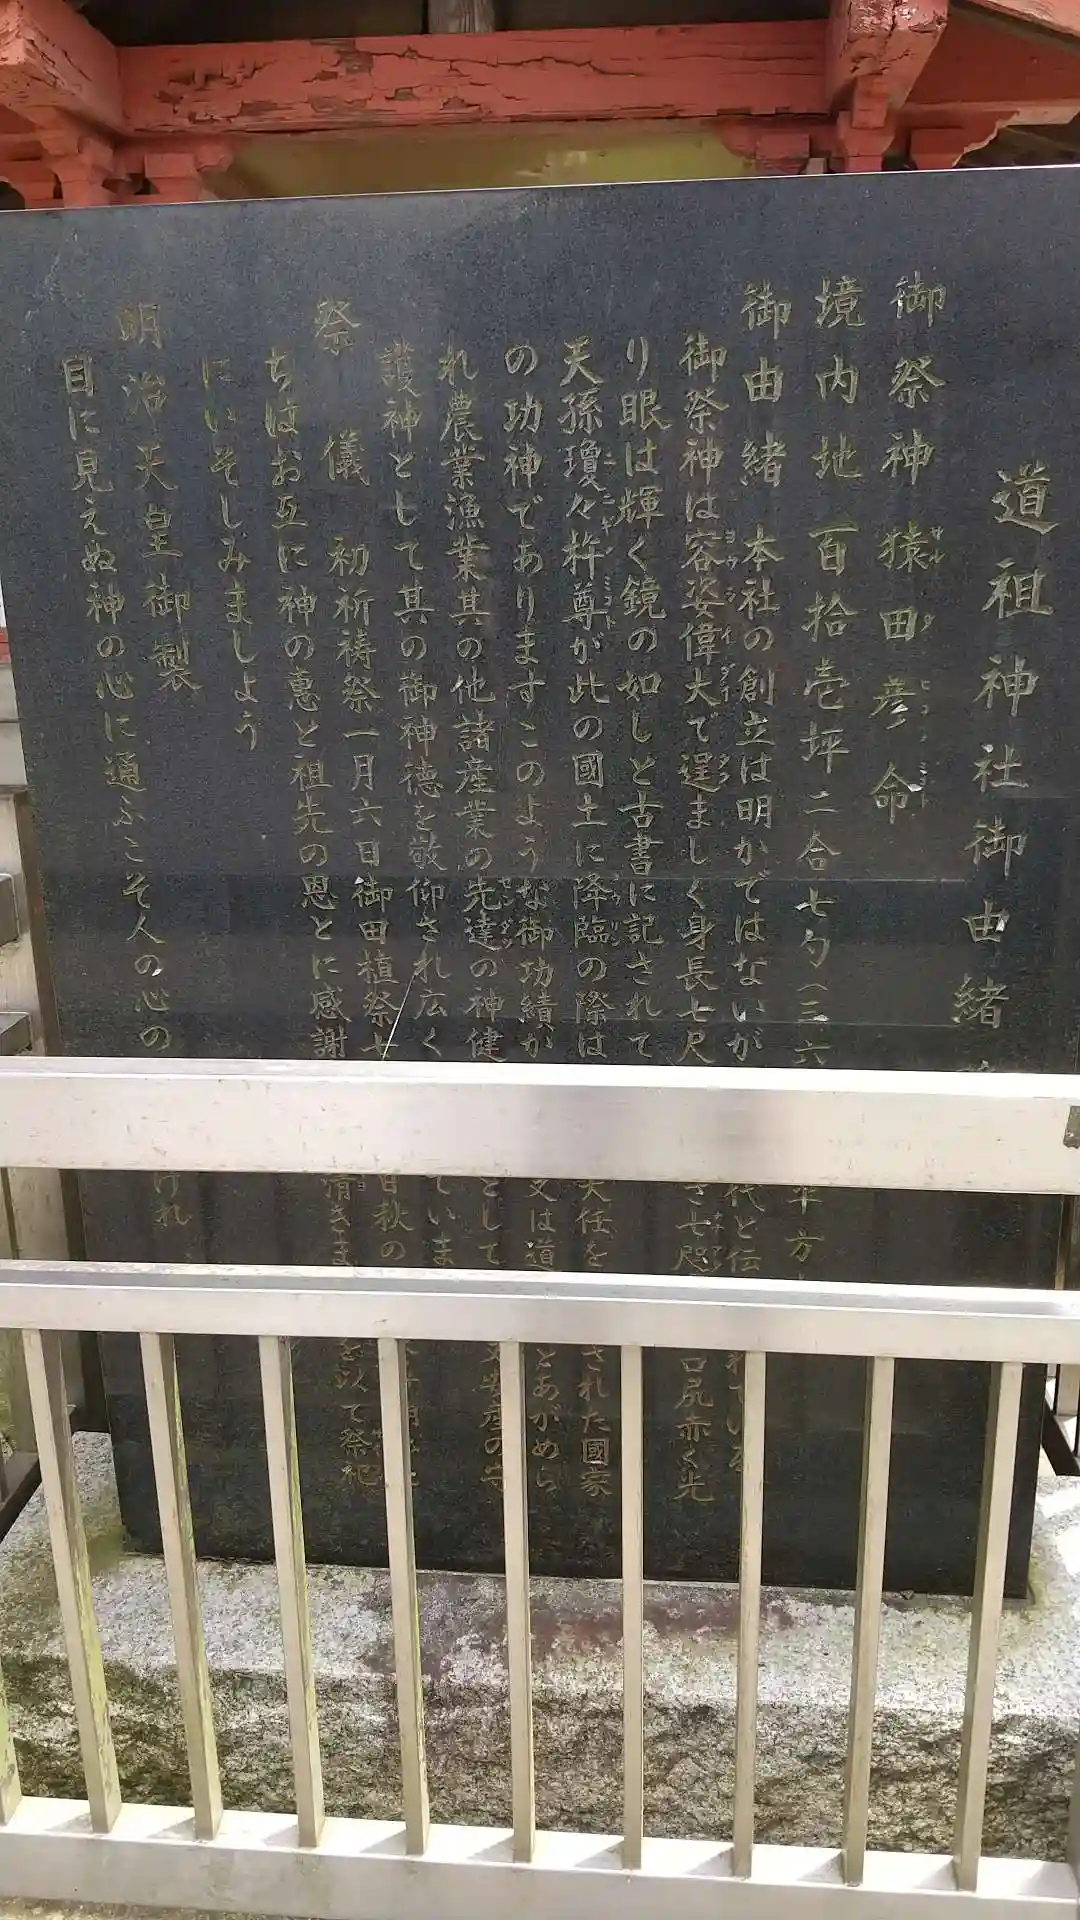 道祖神社御由緒
御祭神 猿田彦命
境内地 百拾壱坪二合七勺(三六 平方
御由緒 本社の創立は明かではないが 代と伝 れている
御祭神は容姿偉大で逞ましく身長七尺 さ七咫 口尻赤く光
り眼は輝く鏡の如しと古書に記されて
天孫瓊々杵尊が此の國土に降臨の際は 大任を された國家
の功神でありますこのような御功績が 又は道 とあがめら
れ農業漁業其の他諸産業の先達の神健 として 安産の守
護神として其の御神徳を敬仰され広く ていま
祭儀 初祈祷祭一月六日御田植祭七 日秋の
ちはお互に神の恵と祖先の恩とに感謝 清きま を以て祭祀
にいそしみましよう
明治天皇御製
目に見えぬ神の心に通ふこそ人の心の けれ